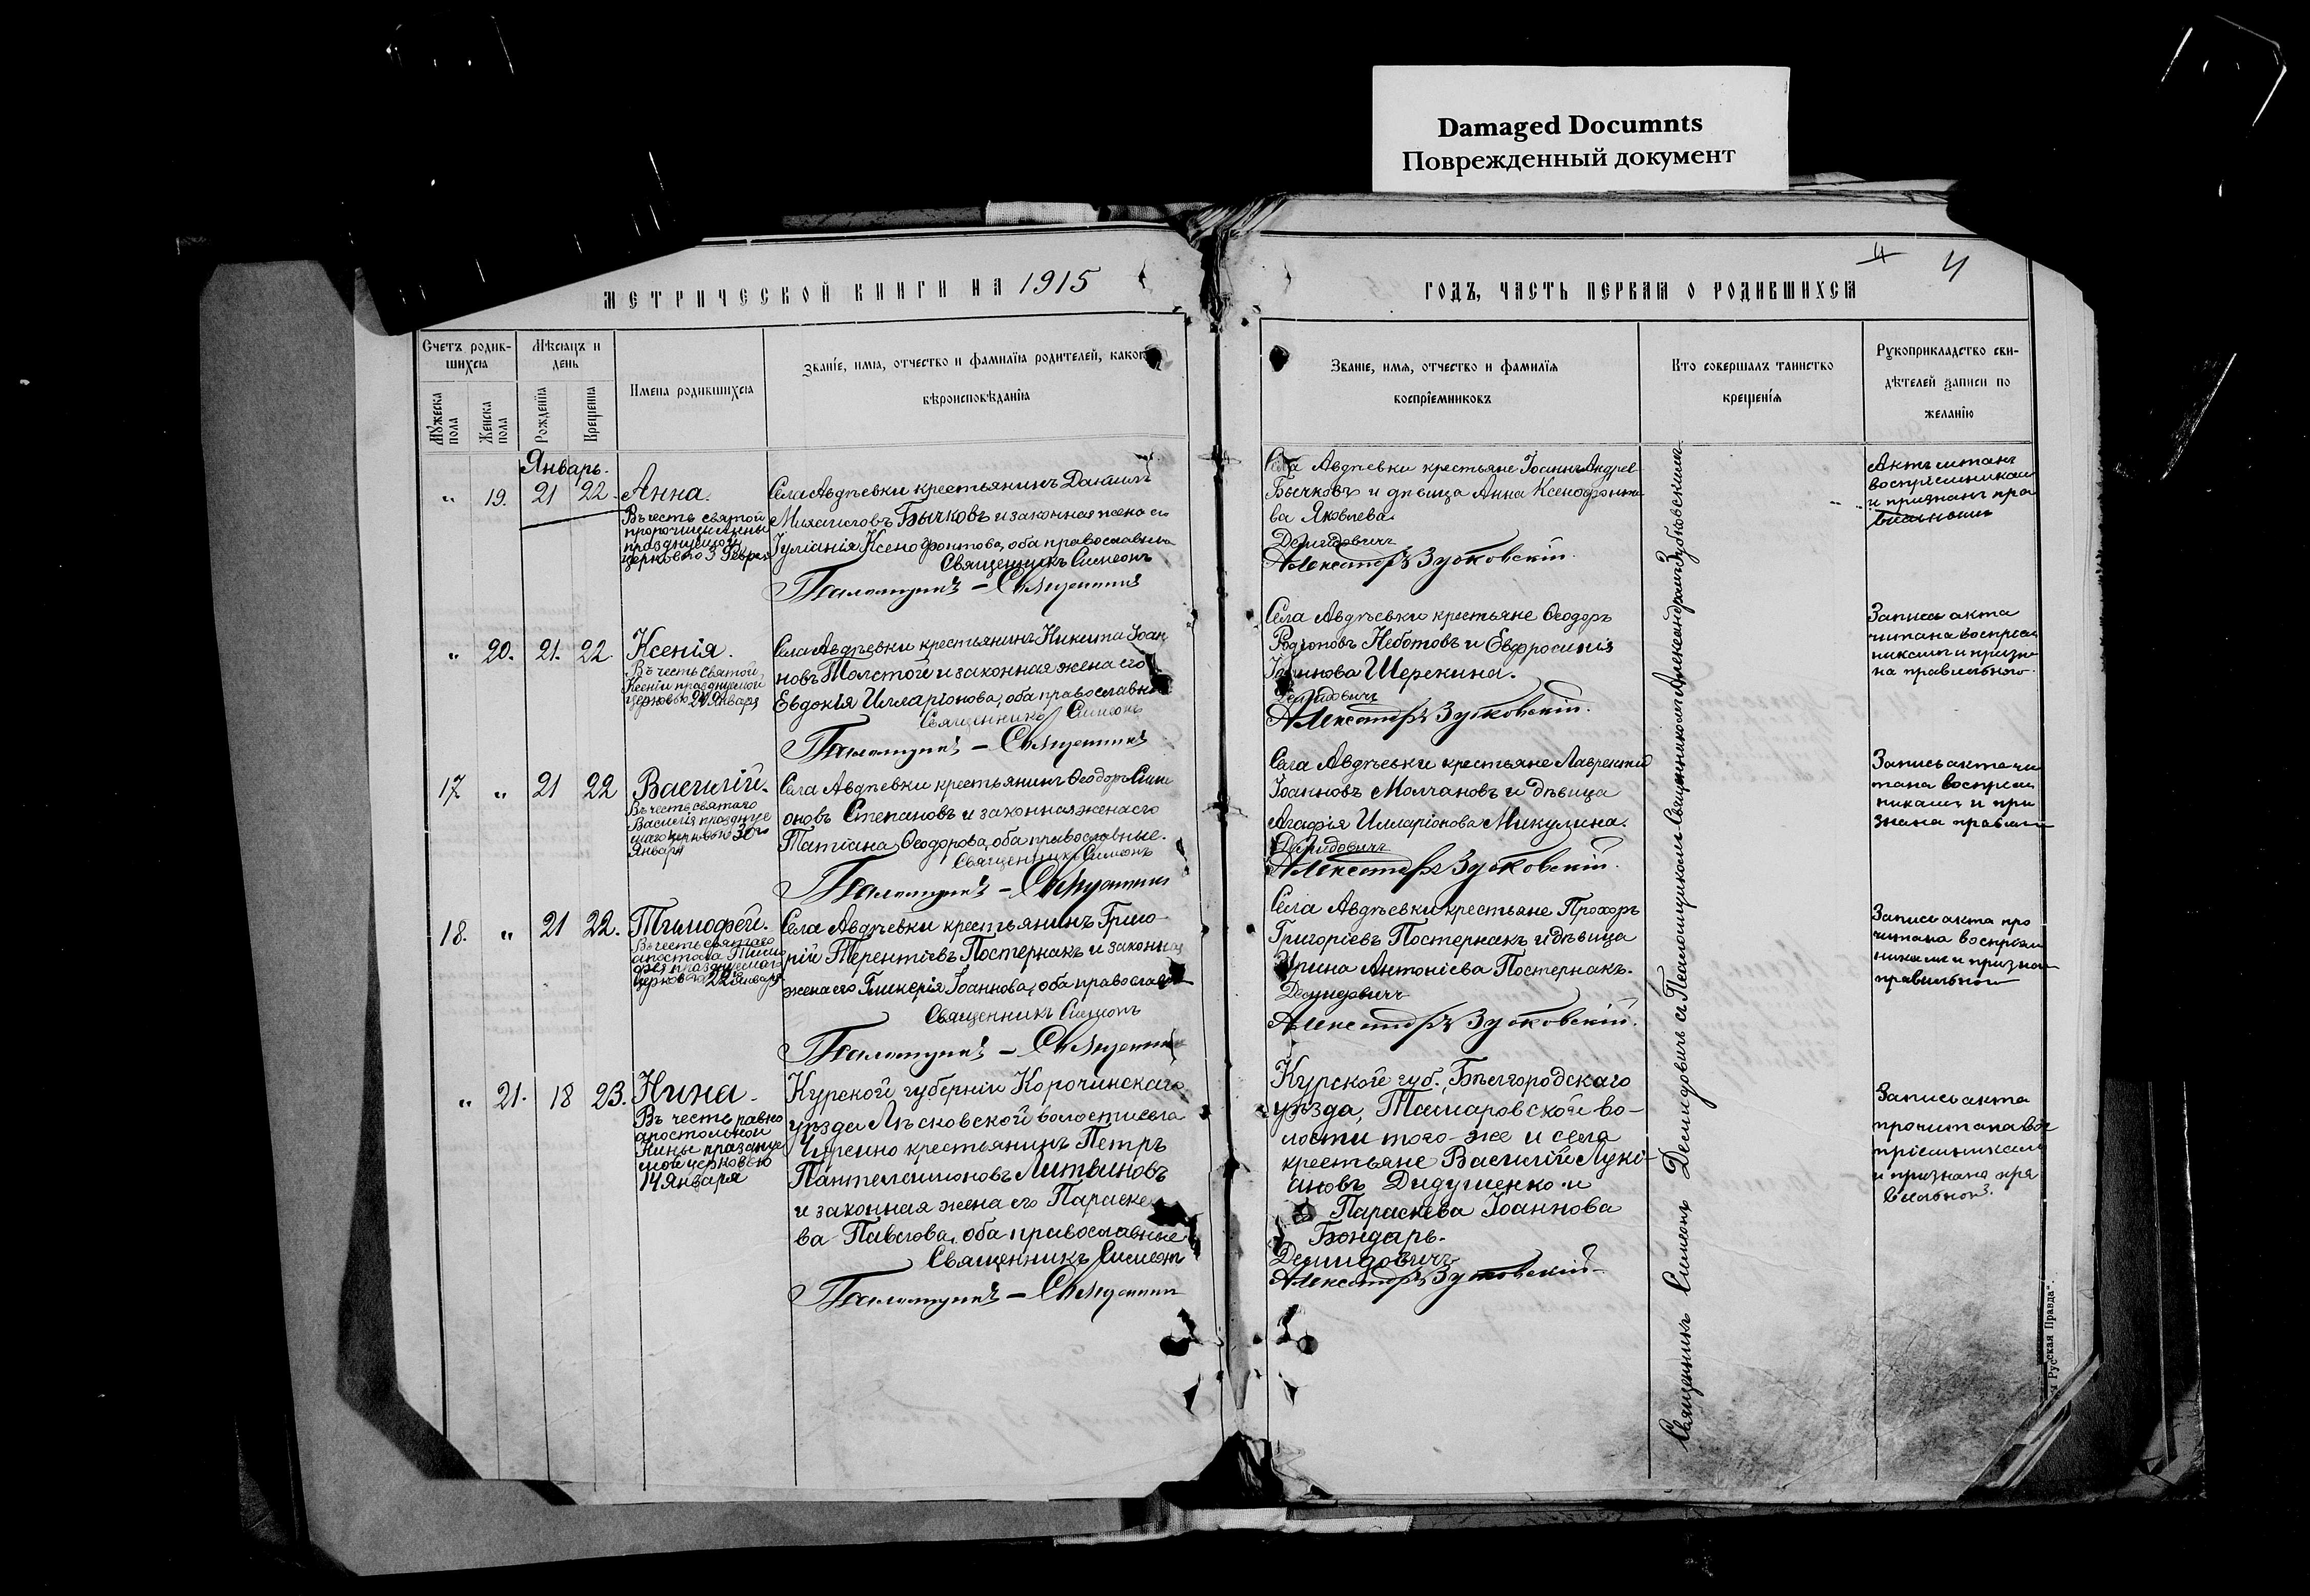 Damaged Documnts
Поврежденный документ
4
4
МЕТРИЧЕСКОЙ КНИГИ НА 1915
ГОДЪ, ЧАСТЬ ПЕРВАЯ О РОДИВШИХСЯ
Счетъ родив-
шихся
Мѣсяцъ и
день
Мужеска пола
Женска пола
Рожденія
Крещенія
Имена родившихся
Званіе, имя, отчество и фамилія родителей, какого
вѣроисповѣданія
Званіе, имя, отчество и фамилія
воспріемниковъ
Кто совершалъ таинство
крещенія
Рукоприкладство сви-
дѣтелей записи по
желанію
Январь.
" 19. 21 22 Анна.
Въ честь святой
пророчицы Анны
празднуемой
церковью 3 Февраля
Села Авдѣевки крестьянинъ Даніилъ
Михаиловъ Бычковъ и законная жена его
Іуліанія Ксенофонтова, оба православные
Священникъ Симеонъ
Села Авдѣевки крестьяне Іоаннъ Андреевъ
Бычковъ и дѣвица Анна Ксенофонто
ва Яковлева.
Демидовичъ
Александръ Зубковскій.
Актъ читанъ
воспріемникам
и признанъ пра
вильнымъ
" 20. 21. 22. Ксенія.
Въ честь святой
Ксеніи празднуемой
церковью 24 Января
Села Авдѣевки крестьянинъ Никита Іоан
новъ Толстой и законная жена его
Евдокія Илларіонова, оба православные
Священникъ Симеонъ
Села Авдѣевки крестьяне Ѳеодоръ
Родіоновъ Неботовъ и Евфросинія
Іоаннова Шерекина.
Демидовичъ
Александръ Зубковскій.
Запись акта
читана воспріем
никами и призна
на правильною.
17. " 21 22 Василій.
Въ честь святаго
Василія празднуе
маго церковью 30го
Января
Села Авдѣевки крестьянинъ Ѳеодоръ Симе
оновъ Степановъ и законная жена его
Татіана Ѳеодорова, оба православные.
Священникъ Симеонъ
Села Авдѣевки крестьяне Лаврентій
Іоанновъ Молчановъ и дѣвица
Агафія Илларіонова Микулина.
Демидовичъ
Александръ Зубковскій.
Запись акта чи
тана воспріем
никами и при
знана правильн
18. " 21 22. Тимофей.
Въ честь святаго
апостола Тимо
фея празднуемаго
церковью 22 Января
Села Авдѣевки крестьянинъ Григо-
рій Терентіевъ Постернакъ и законная
жена его Гликерія Іоаннова, оба православн
Священникъ Симеонъ
Села Авдѣевки крестьяне Прохоръ
Григоріевъ Постернакъ и дѣвица
Ирина Антоніева Постернакъ.
Демидовичъ
Александръ Зубковскій.
Запись акта про
читана воспріем
никами и признан
правильною
" 21. 18 23. Нина.
Въ честь равно
апостольной
Нины празднуе
мой церковью
14 Января
Курской губерніи Корочинскаго
уѣзда Лѣсковской волости села
крестьянинъ Петръ
Пантелеимоновъ Литвиновъ
и законная жена его Параске
ва Павлова, оба православные
Священникъ Симеонъ
Курской губ. Бѣлгородскаго
уѣзда, Тамаровской во-
лости того-же и села
крестьяне Василій Лукі-
ановъ Дидушенко и
Параскева Іоаннова
Бондарь.
Демидовичъ
Александръ Зубковскій
Запись акта
прочитана вос
пріемниками
и признана пра
вильной.
Священникъ Симеонъ Демидовичъ съ Псаломщикомъ-Священникомъ Александромъ Зубковскимъ
Русская Правда".